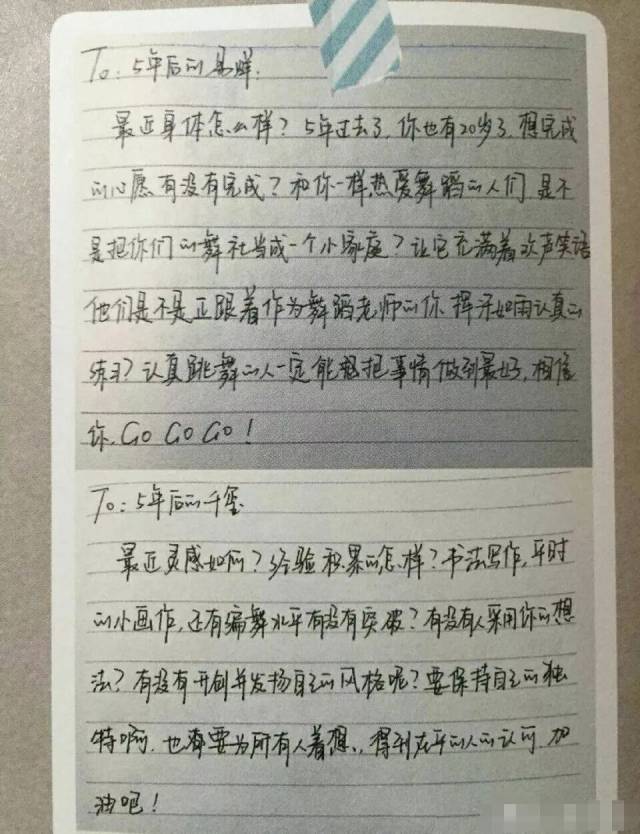 To：5年后的易烊：
最近身体怎么样？5年过去了，你也有20岁了，想完成
的心愿有没有完成？和你一样热爱舞蹈的人们，是不
是把你们的舞社当成一个小家庭？让它充满着欢声笑语
他们是不是正跟着作为舞蹈老师的你，挥汗如雨认真的
练习？认真跳舞的人一定能把事情做到最好，相信
你，GO GO GO！
To：5年后的千玺
最近灵感如何？经验积累的怎样？书法写作，平时
的小画作，还有编舞水平有没有突破？有没有人采用你的想
法？有没有开创并发扬自己的风格呢？要保持自己的独
特啊，也都要为所有人着想，得到在乎的人的认可，加
油吧！